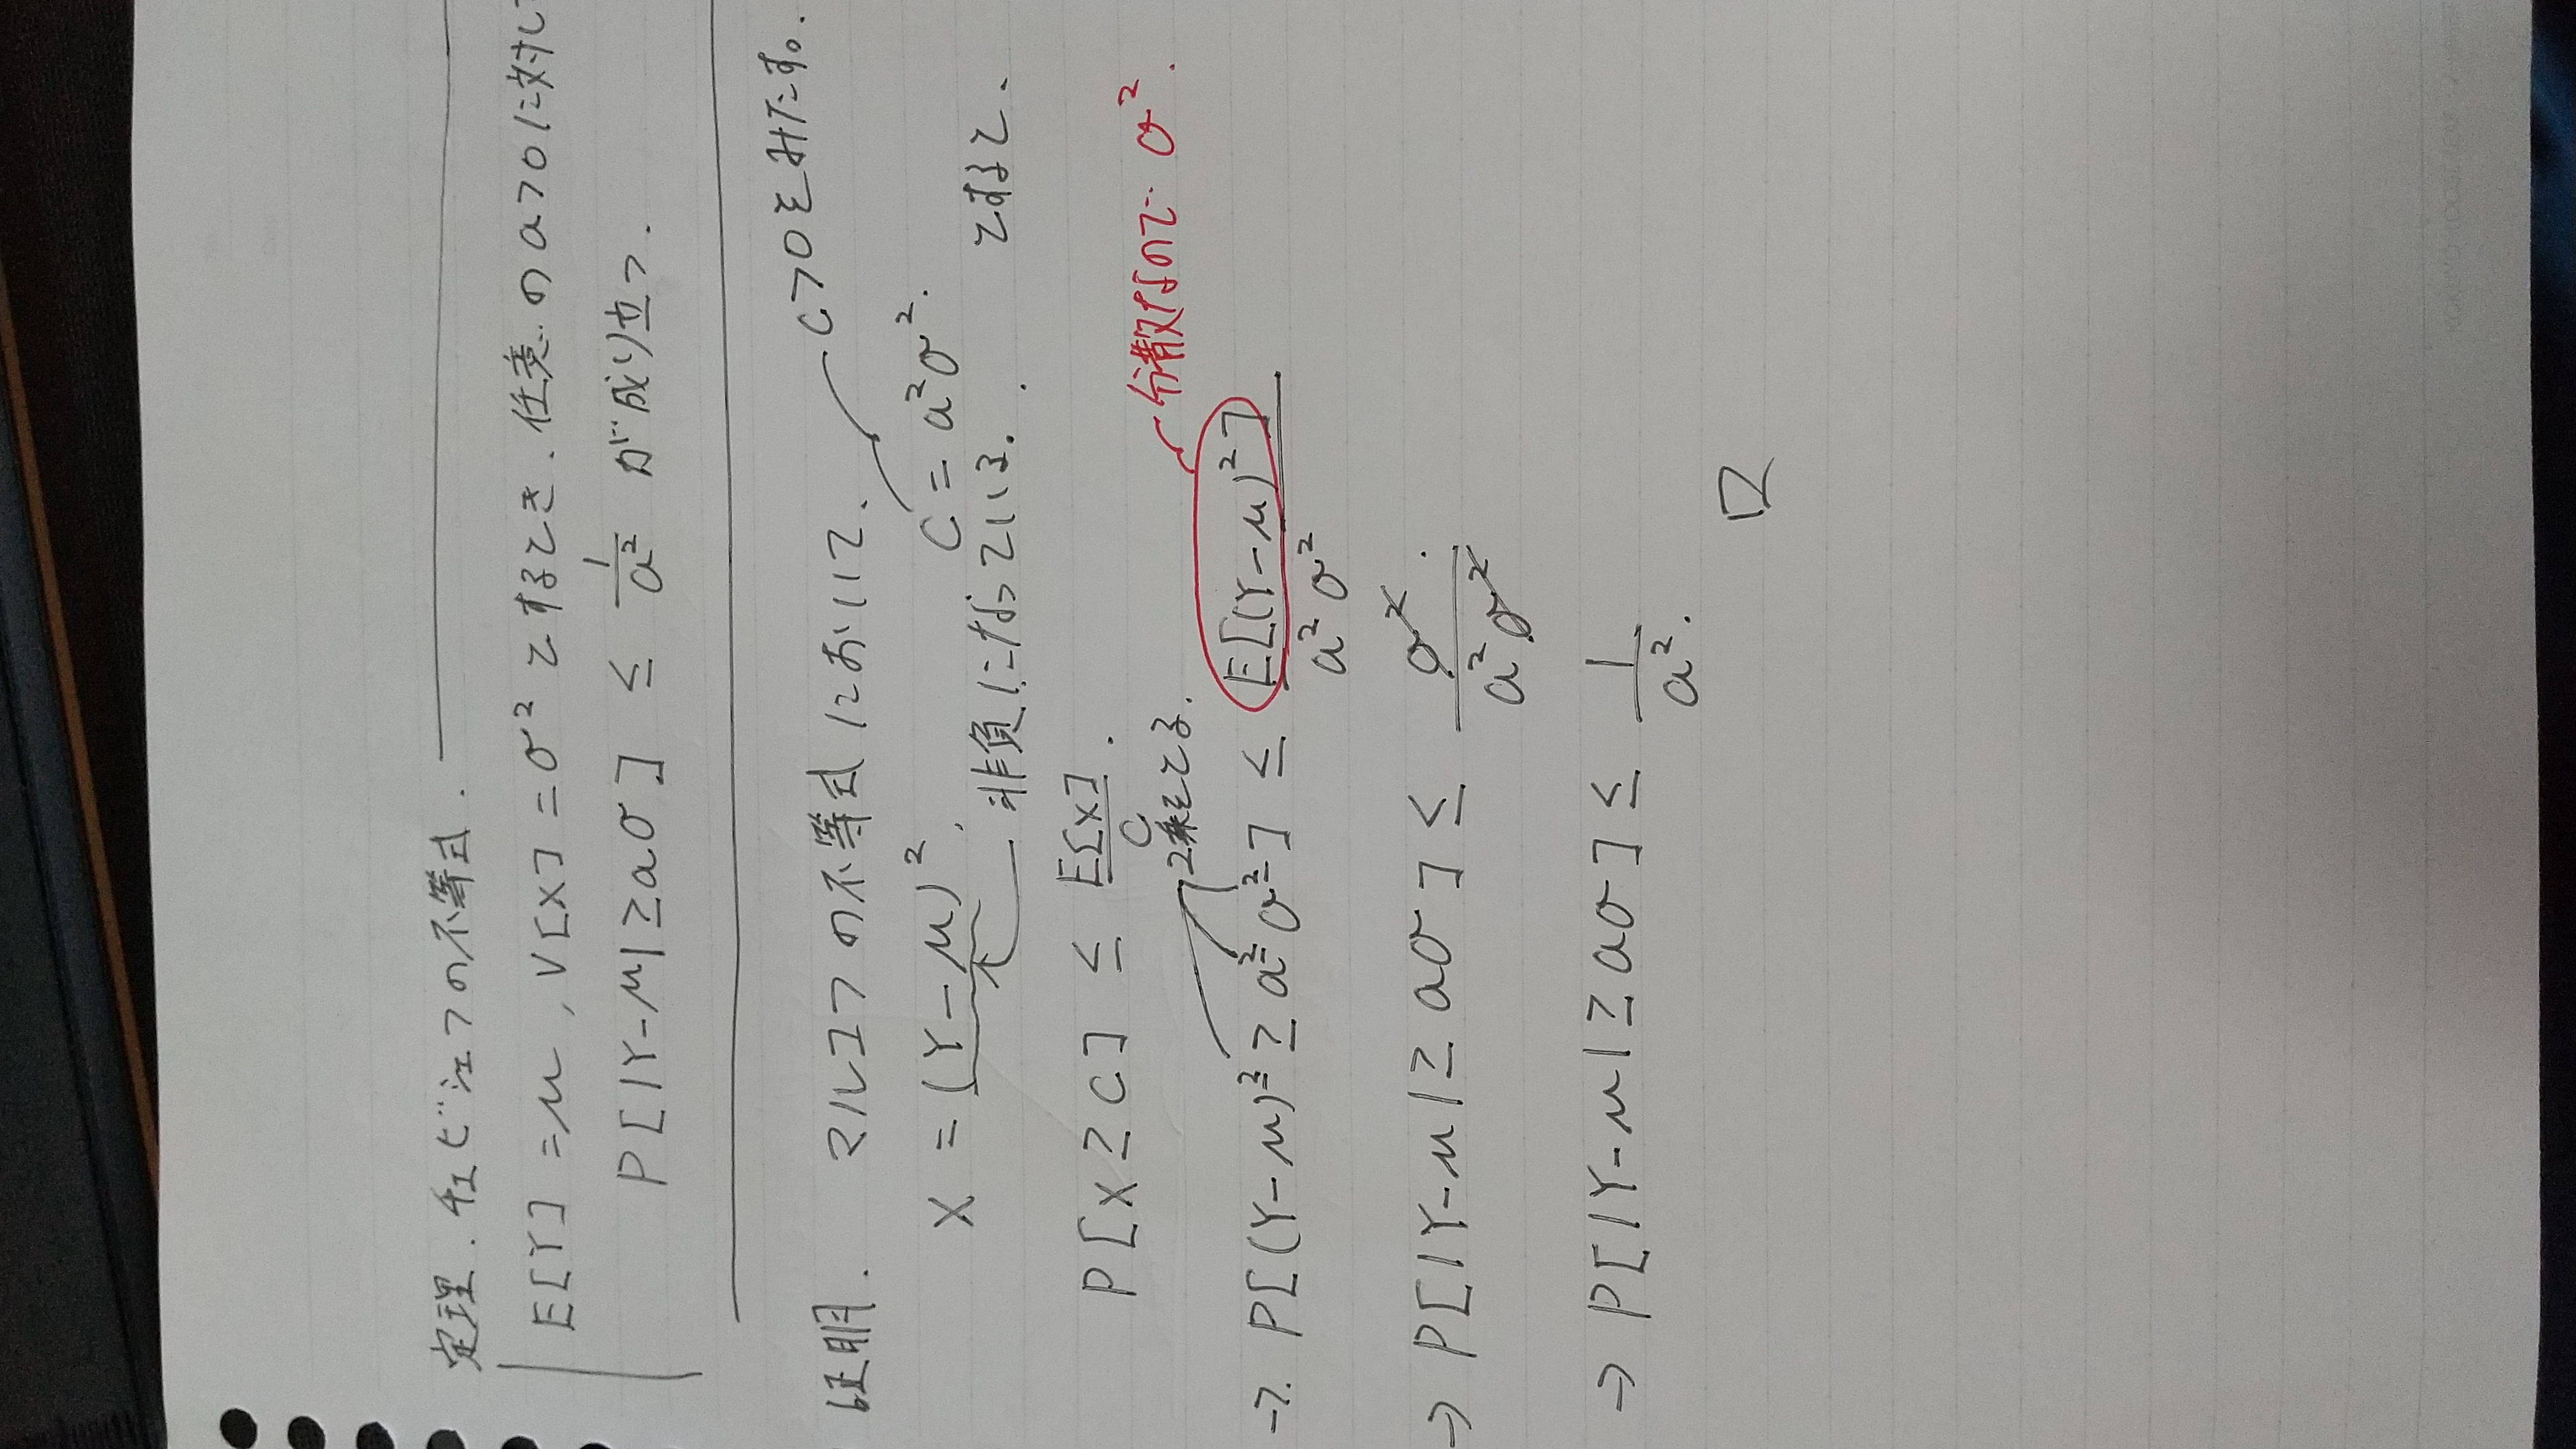 定理. チェビシェフの不等式.
E[Y] = μ, V[X] = σ² とするとき、任意の a>0 に対して
P[|Y-μ| ≥ aσ] ≤ 1/a² が成り立つ.
証明. マルコフの不等式において、
c>0をみたす。
X = (Y-μ)², C = a²σ².
非負になっている. とすると、
P[X ≥ C] ≤ E[X]/C.
2乗をとる.
分散なので σ².
→ P[(Y-μ)² ≥ a²σ²] ≤ E[(Y-μ)²]/a²σ²
→ P[|Y-μ| ≥ aσ] ≤ σ²/a²σ²
→ P[|Y-μ| ≥ aσ] ≤ 1/a².
□